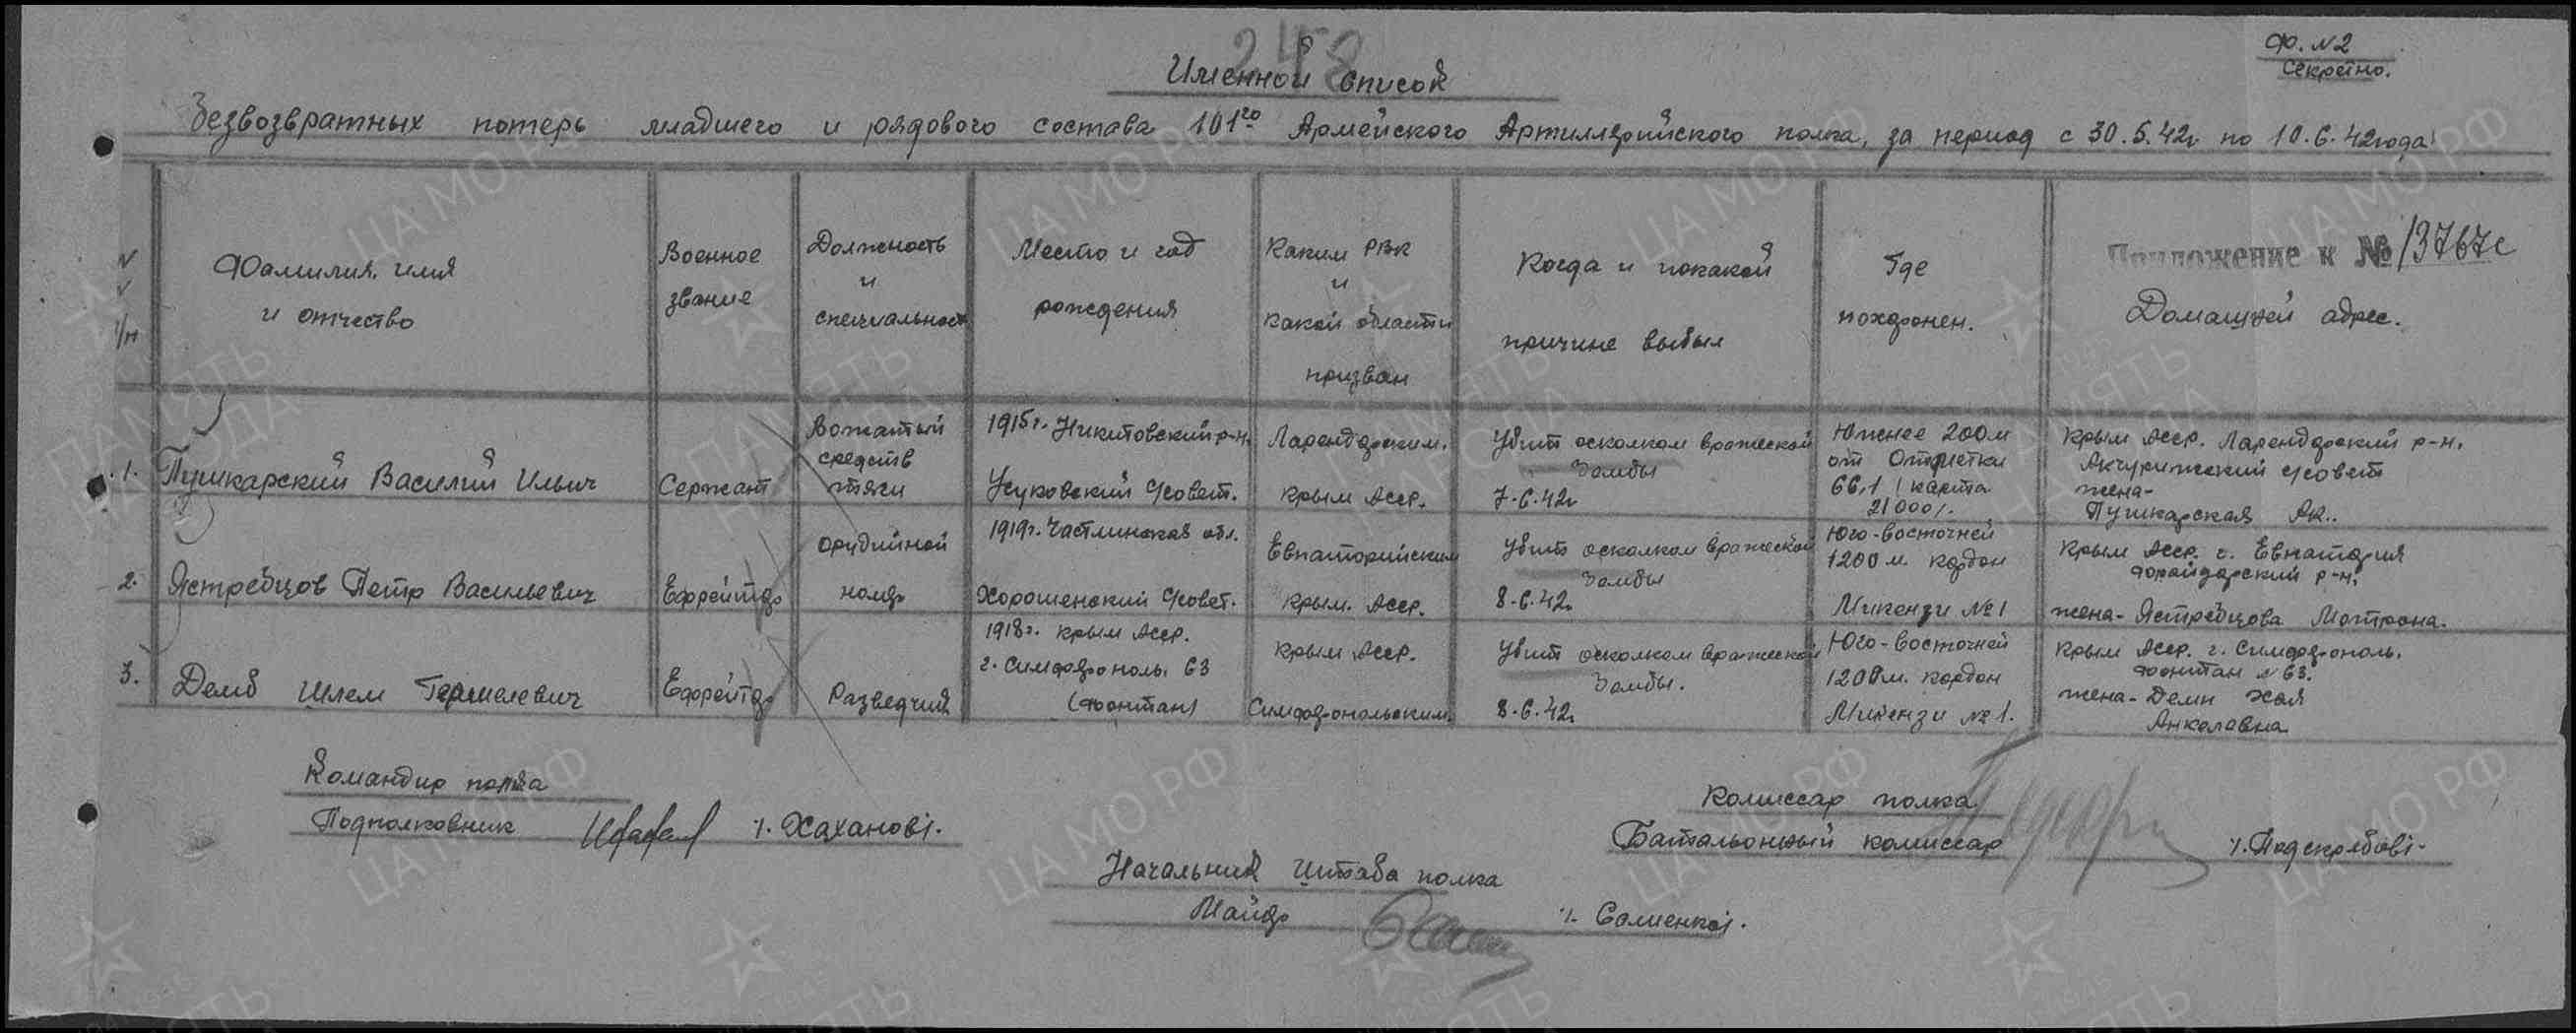 248
Ф. №2
Секретно.
Именной список
Безвозвратных потерь младшего и рядового состава 101го Армейского Артиллерийского полка, за период с 30.5.42г по 10.6.42года
Приложение к № 13767с
№ п/п
Фамилия, имя
и отчество
Военное
звание
Должность
и
специальност
Место и год
рождения
Каким РВК
и
какой области
призван
Когда и по какой
причине выбыл
Где
похоронен.
Домашний адрес.
1.
Пушкарский Василий Ильич
Сержант
Вожатый
средств
тяги
1915г. Никитовский р-н.
Усуковский с/совет.
Ларендорфским.
Крым Асср.
Убит осколком вражеской
бомбы
7.6.42г
Южнее 200м
от Отметки
66,1 /карта
21000/.
Крым Асср. Ларендорфский р-н.
жена-
Пушкарская
2.
Ястребцов Петр Васильевич
Ефрейтор
Орудийной
номер
1919г.
Хорошенский с/совет.
Евпаторийским
Крым. Асср.
Убит осколком вражеской
бомбы
8.6.42г
Юго-Восточней
1200 м. кордон
Микензи №1
Крым Асср. г. Евпатория
Фрайдорфский р-н.
жена- Ястребцова Мотрона.
3.
Демб Шлем Гершелевич
Ефрейтор
Разведчик
1918г. Крым Асср.
г. Симферополь. 63
(фонтан)
Крым Асср.
Симферопольским.
Убит осколком вражеской
бомбы.
8.6.42г
Юго-Восточней
1200м. кордон
Микензи №1.
Крым Асср. г. Симферополь.
фонтан №63.
жена- Демн Хая
Анкелавна
Командир полка
Подполковник /. Хаханов/.
Комиссар полка
Батальонный комиссар /. Подскребов/.
Начальник Штаба полка
Майор /. Соменко/.
ЦА МО РФ
ПАМЯТЬ
НАРОДА